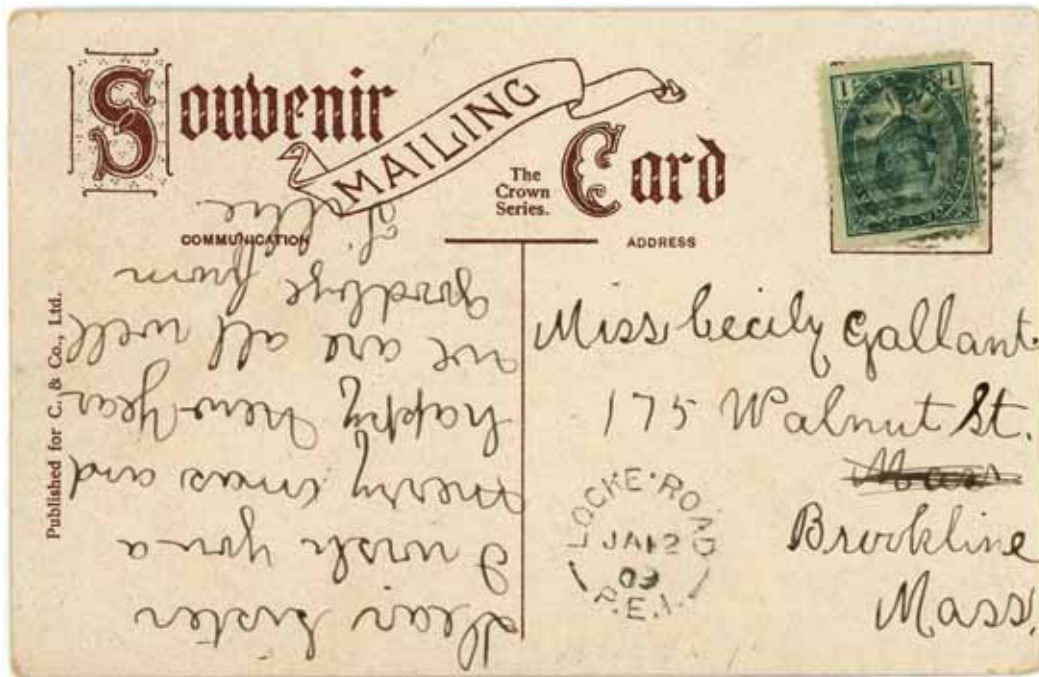 Souvenir
MAILING
The
Crown
Series.
Card
COMMUNICATION
ADDRESS
Published for C. & Co., Ltd.
Dear Sister
I wish you a
merry xmas and
happy New Year
we are all well
goodbye from
Miss Cecily Gallant.
175 Walnut St.
Mass
Brookline
Mass.
LOCKE·ROAD
JA 12
09
P.E.I.